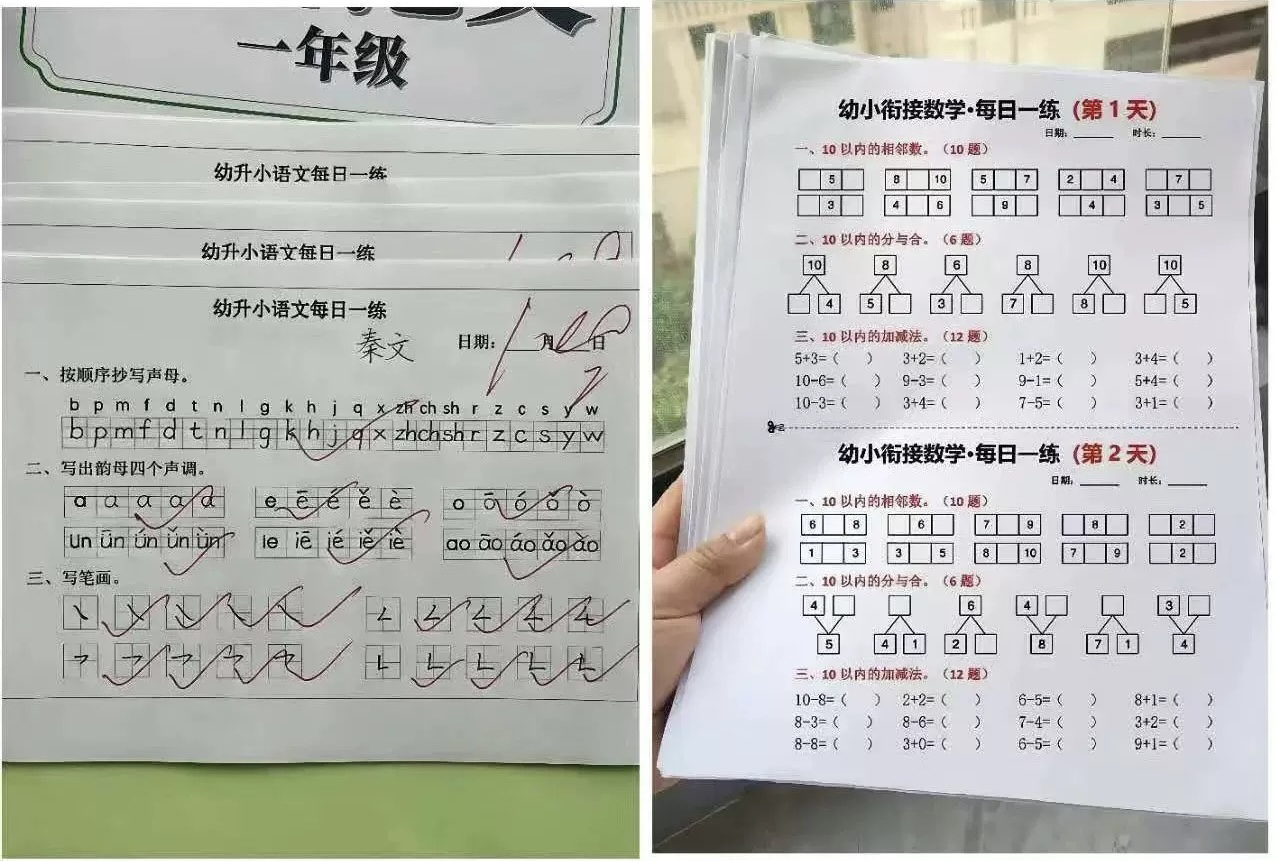 一年级
幼升小语文每日一练
幼升小语文每日一练
幼升小语文每日一练
秦文 日期: 月 日
一、按顺序抄写声母。
b p m f d t n l g k h j q x zh ch sh r z c s y w
b p m f d t n l g k h j q x zh ch sh r z c s y w
二、写出韵母四个声调。
a ā á ǎ à e ē é ě è o ō ó ǒ ò
un ūn ún ǔn ùn ie iē ié iě iè ao āo áo ǎo ào
三、写笔画。
幼小衔接数学·每日一练（第 1 天）
日期: 时长:
一、10 以内的相邻数。（10 题）
5 8 10 5 7 2 4 7
3 4 6 9 4 3 5
二、10 以内的分与合。（6 题）
10 8 6 8 10 10
4 5 3 7 8 5
三、10 以内的加减法。（12 题）
5+3=（ ） 3+2=（ ） 1+2=（ ） 3+4=（ ）
10-6=（ ） 9-3=（ ） 9-1=（ ） 5+4=（ ）
10-3=（ ） 3+4=（ ） 7-5=（ ） 3+1=（ ）
幼小衔接数学·每日一练（第 2 天）
日期: 时长:
一、10 以内的相邻数。（10 题）
6 8 6 7 9 8 2
1 3 3 5 8 10 7 9 2
二、10 以内的分与合。（6 题）
4 6 4 3
5 4 1 2 8 7 1 4
三、10 以内的加减法。（12 题）
10-8=（ ） 2+2=（ ） 6-5=（ ） 8+1=（ ）
8-3=（ ） 8-6=（ ） 7-4=（ ） 3+2=（ ）
8-8=（ ） 3+0=（ ） 6-5=（ ） 9+1=（ ）